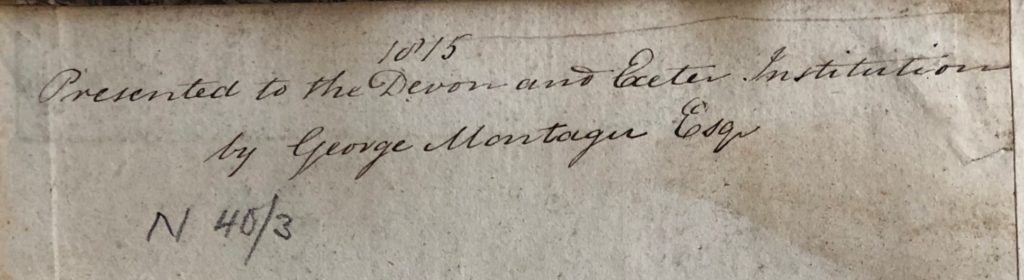 1815
Presented to the Devon and Exeter Institution
by George Montagu Esqr
N 45/3